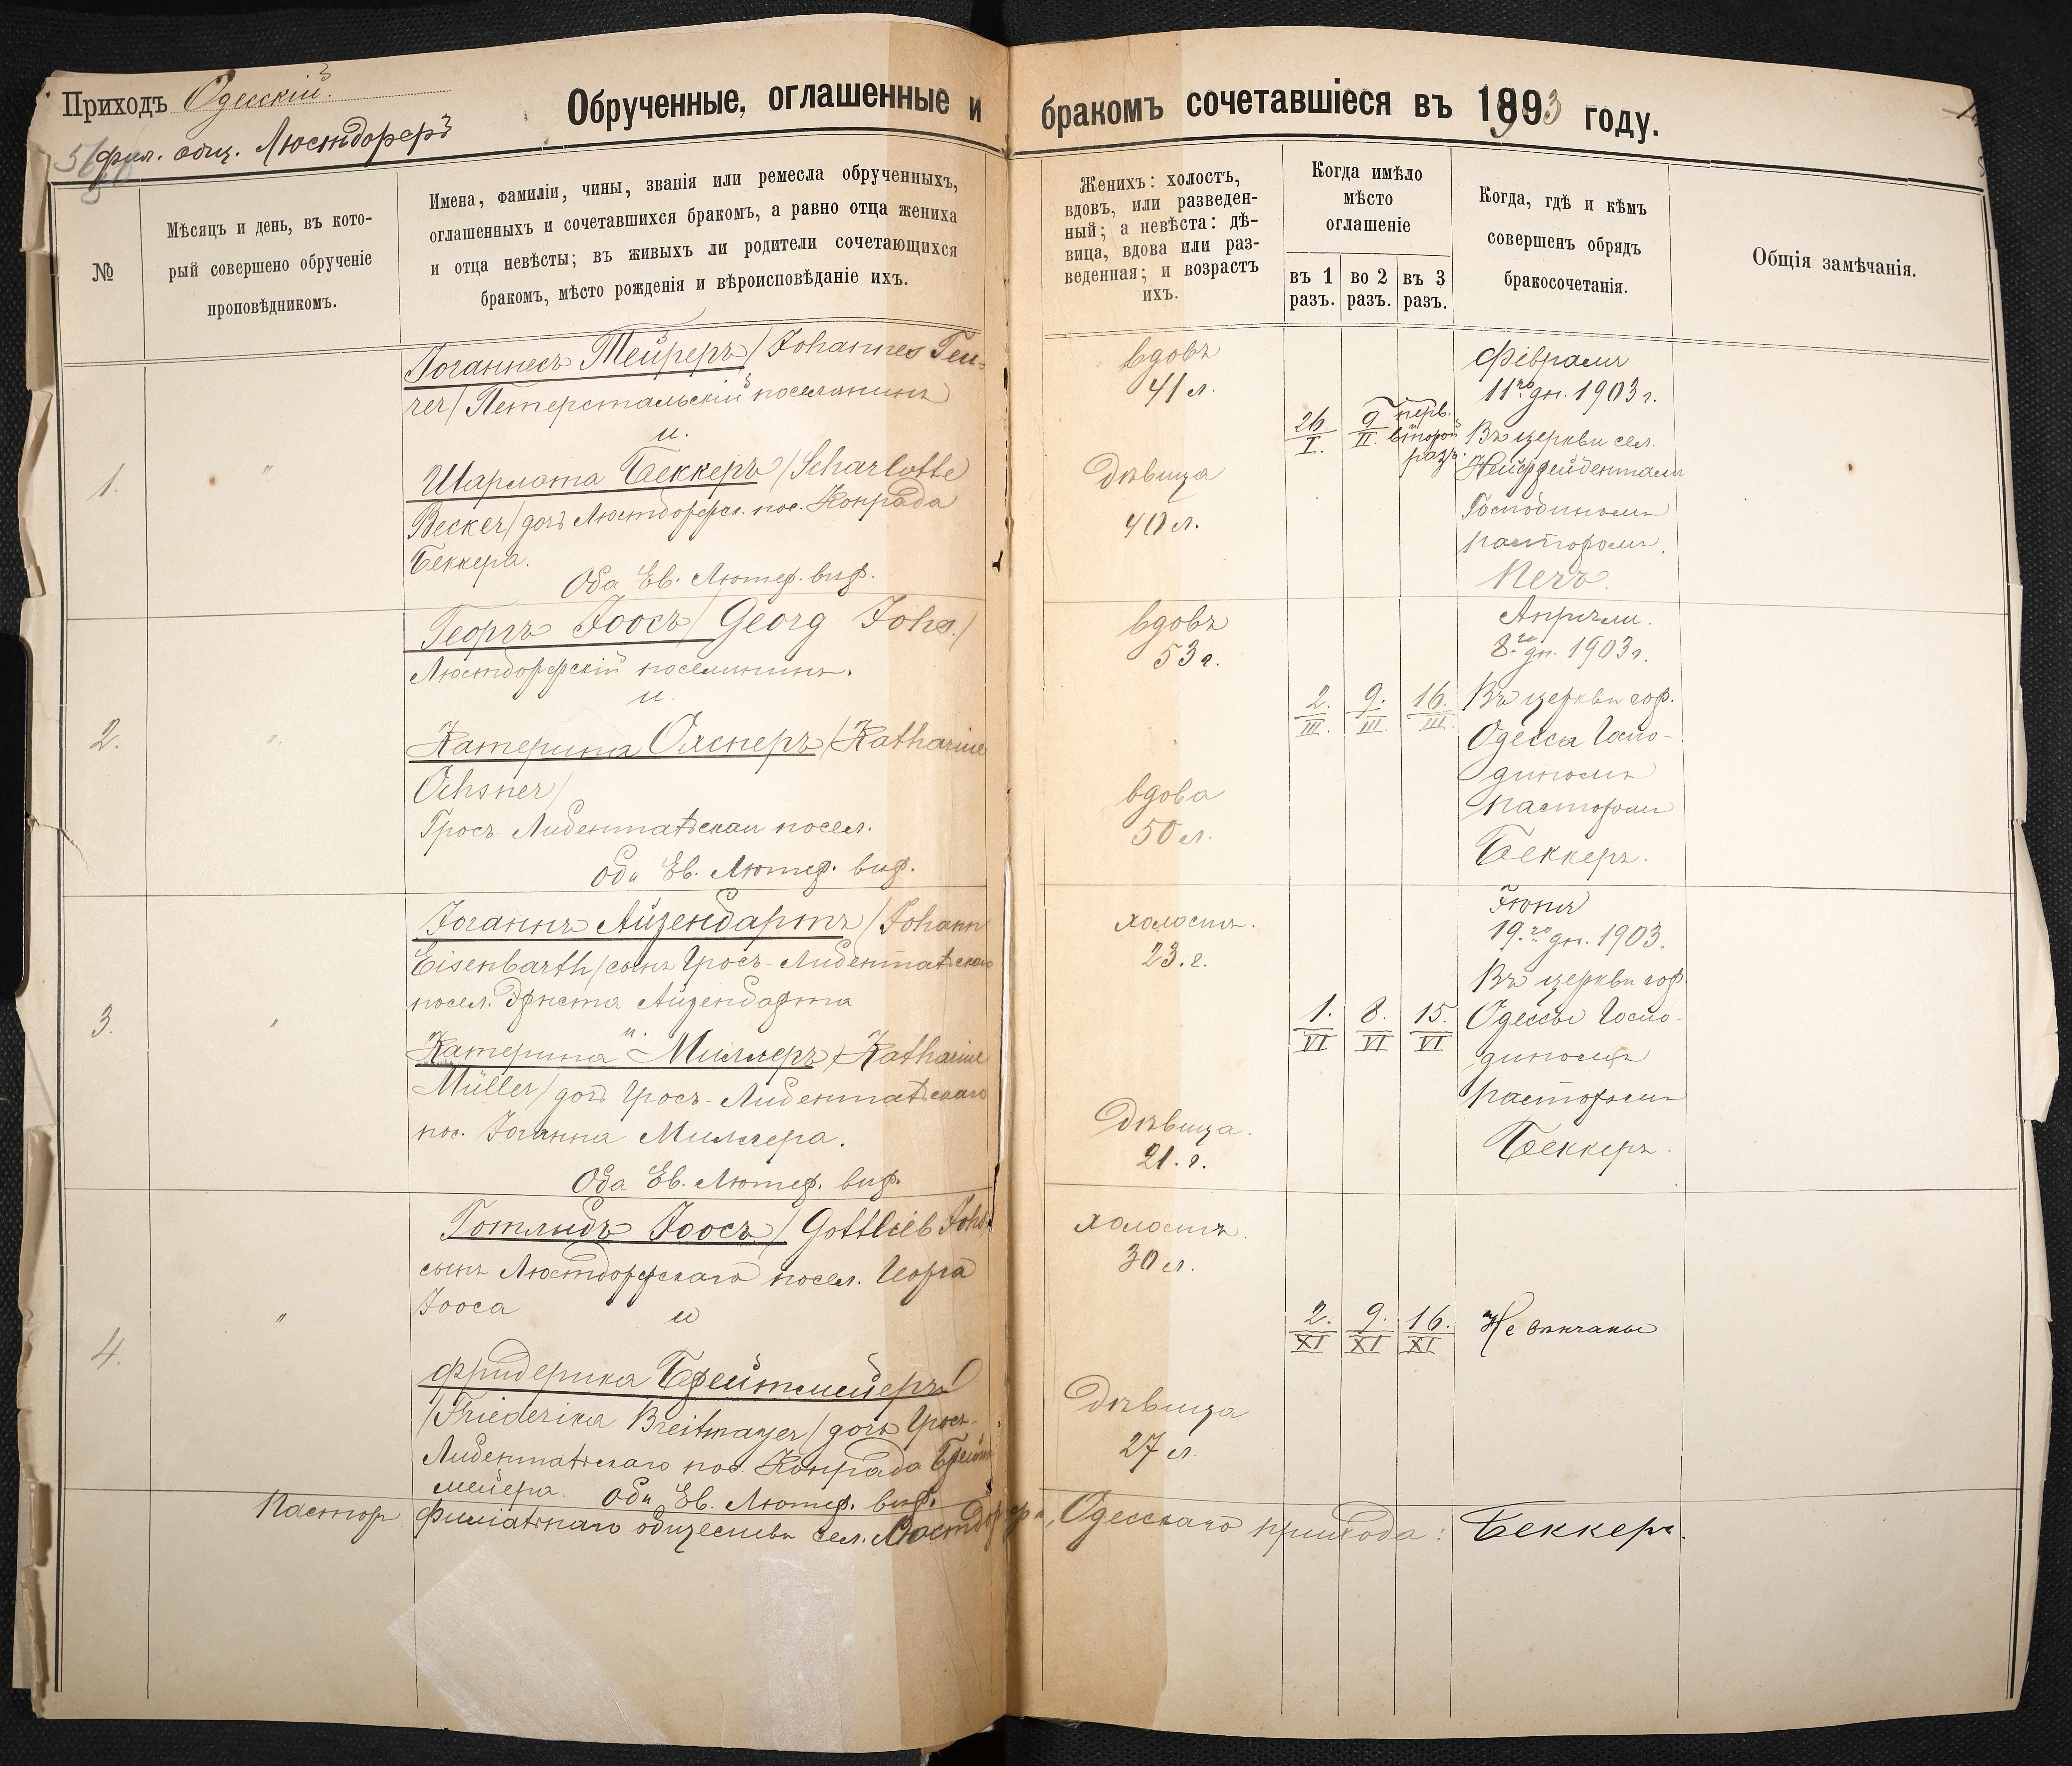 Приходъ Одесскій.
фил. общ. Люстдорфъ
Обрученные, оглашенные и бракомъ сочетавшіеся въ 1903 году.
№
Мѣсяцъ и день, въ кото-
рый совершено обрученіе
проповѣдникомъ.
Имена, фамиліи, чины, званія или ремесла обрученныхъ,
оглашенныхъ и сочетавшихся бракомъ, а равно отца жениха
и отца невѣсты; въ живыхъ ли родители сочетающихся
бракомъ, мѣсто рожденія и вѣроисповѣданіе ихъ.
Женихъ: холостъ,
вдовъ, или разведен-
ный; а невѣста: дѣ-
вица, вдова или раз-
веденная; и возрастъ
ихъ.
Когда имѣло
мѣсто
оглашеніе
въ 1
разъ.
во 2
разъ.
въ 3
разъ.
Когда, гдѣ и кѣмъ
совершенъ обрядъ
бракосочетанія.
Общія замѣчанія.
1.
"
Іоганнесъ Тейреръ / Johannes
rer / Петерстальскій поселянинъ
и.
Шарлота Беккеръ / Scharlotte
Becker / дочь Люстдорфск. пос. Конрада
Беккера.
Оба Ев. Лютер. вир.
вдовъ
41 л.
Дѣвица
40 л.
26
I.
9
II.
перв.
второй
разъ.
Февраля
11го дн. 1903 г.
Въ церкви сел.
Нейфрейденталя
Господиномъ
пасторомъ.
2.
"
Георгъ Іоосъ / Georg Johs. /
Люстдорфскій поселянинъ.
и.
Катерина Охснеръ / Katharine
Ochsner /
Гросъ-Либентальская посел.
Оба Ев. Лютер. вир.
вдовъ
53 г.
вдова
50 л.
2.
III.
9.
III.
16.
III.
Апрѣля.
8го дн. 1903 г.
Въ церкви гор.
Одессы Госпо-
диномъ
пасторомъ
Беккеръ.
3.
"
Іоганнъ Айзенбартъ / Johann
Eisenbarth / сынъ Гросъ-Либентальскаго
посел. Эрнста Айзенбарта
и.
Катерина Миллеръ / Katharine
Müller / дочь Гросъ-Либентальскаго
пос. Іоганна Миллера.
Оба Ев. Лютер. вир.
холостъ.
23. г.
Дѣвица.
21. г.
1.
VI
8.
VI
15.
VI
Іюня
19.го дн. 1903.
Въ церкви гор.
Одессы Госпо-
диномъ
пасторомъ
Беккеръ.
4.
"
Готлибъ Іоосъ / Gottlieb Johs
сынъ Люстдорфскаго посел. Георга
Іооса и
Фридерика Брейтмейеръ
/ Friederika Breitmayer / дочь Гросъ-
Либентальскаго пос. Конрада Брейт
мейера. Оба Ев. Лютер. вир.
холостъ.
30 л.
Дѣвица
27 л.
2.
XI
9.
XI
16.
XI
Не вѣнчаны
Пастор Филіальнаго общества сел. Люстдорфа, Одесскаго прихода: Беккеръ.